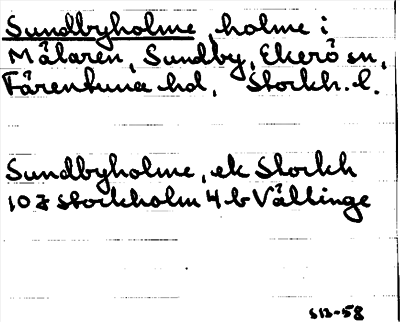 Sundbyholme, holme i
Mälaren, Sundby, Ekerö sn,
Färentuna hd, Stockh. l.
Sundbyholme, ek Stockh
10 I Stockholm 4 b Vällinge
S 13-58